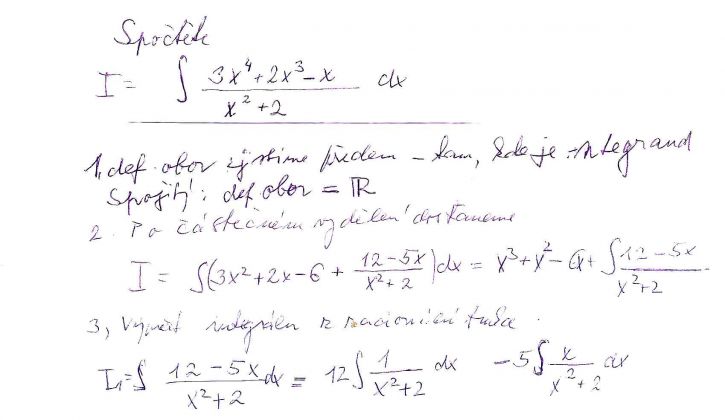 Spočtěte
I = ∫ (3x⁴+2x³-x)/(x²+2) dx
1, def. obor zjistíme předem - tam, kde je integrand
spojitý: def obor = ℝ
2. Po částečném vydělení dostaneme
I = ∫(3x²+2x-6 + (12-5x)/(x²+2))dx = x³+x²-6x+∫(12-5x)/(x²+2)
3, integrálu z racionální
I₁=∫ (12-5x)/(x²+2) dx = 12∫ 1/(x²+2) dx -5∫ x/(x²+2) dx